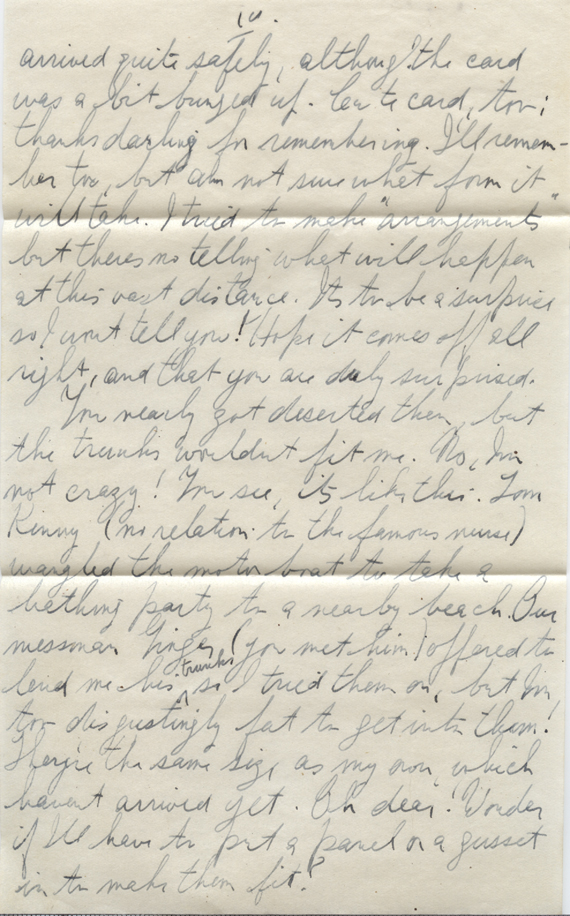 10.
arrived quite safely, although the card
was a bit bunged up. Cute card, too;
thanks darling for remembering. I'll remem-
ber too, but am not sure what form it
will take. I tried to make "arrangements"
but theres no telling what will happen
at this vast distance. Its to be a surprise
so I wont tell you! Hope it comes off all
right, and that you are duly surprised.
You nearly got deserted then, but
the trunks wouldnt fit me. No, Im
not crazy! You see, its like this. Tom
Kinny (no relation to the famous nurse)
wangled the motor boat to take a
bathing party to a nearby beach. Our
messman Ginger (you met him) offered to
lend me his trunks, so I tried them on, but Im
too disgustingly fat to get into them!
They're the same size as my own, which
havent arrived yet. Oh dear! Wonder
if I'll have to put a panel or a gusset
in to make them fit?